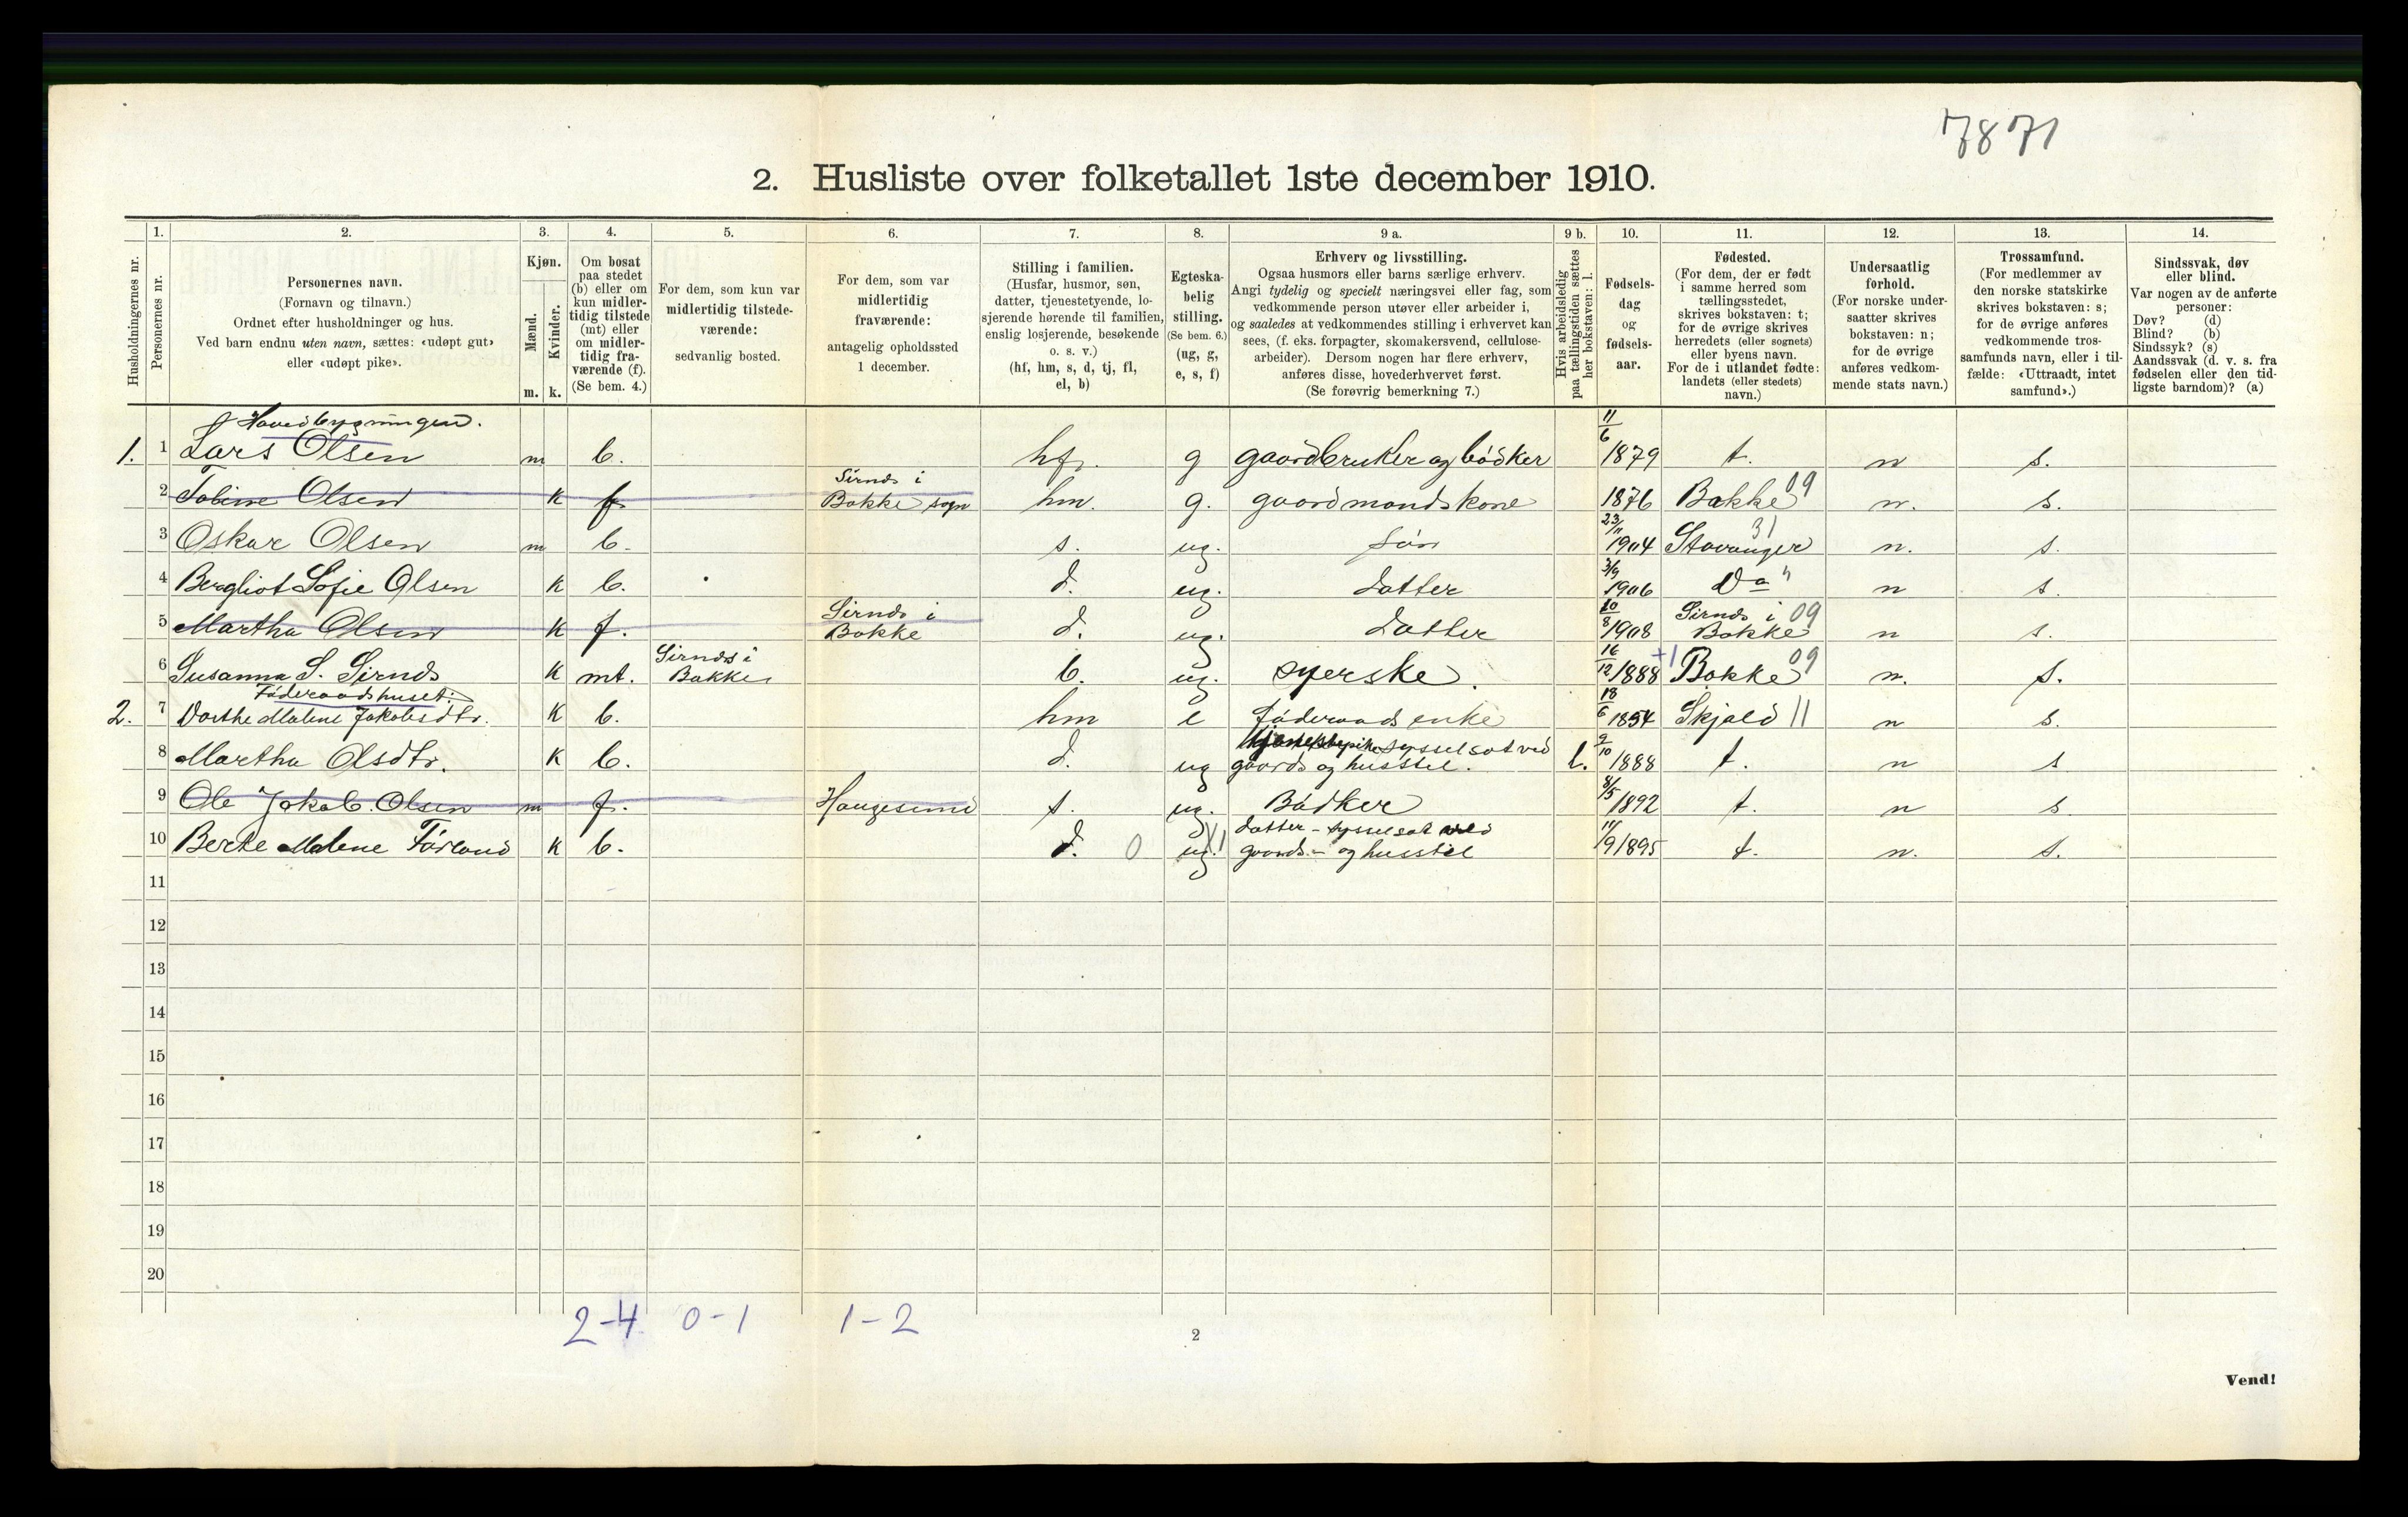 7871
2. Husliste over folketallet 1ste december 1910.
Husholdningernes nr.
1. Personernes nr.
2. Personernes navn.
(Fornavn og tilnavn.)
Ordnet efter husholdninger og hus.
Ved barn endnu uten navn, sættes: «udøpt gut»
eller «udøpt pike».
3. Kjøn.
Mænd. m.
Kvinder. k.
4. Om bosat
paa stedet
(b) eller om
kun midler-
tidig tilstede
(mt) eller
om midler-
tidig fra-
værende (f).
(Se bem. 4.)
5. For dem, som kun var
midlertidig tilstede-
værende:
sedvanlig bosted.
6. For dem, som var
midlertidig
fraværende:
antagelig opholdssted
1 december.
7. Stilling i familien.
(Husfar, husmor, søn,
datter, tjenestetyende, lo-
sjerende hørende til familien,
enslig losjerende, besøkende
o. s. v.)
(hf, hm, s, d, tj, fl,
el, b)
8. Egteska-
belig
stilling.
(Se bem. 6.)
(ug, g,
e, s, f)
9 a. Erhverv og livsstilling.
Ogsaa husmors eller barns særlige erhverv.
Angi tydelig og specielt næringsvei eller fag, som
vedkommende person utøver eller arbeider i,
og saaledes at vedkommendes stilling i erhvervet kan
sees, (f. eks. forpagter, skomakersvend, cellulose-
arbeider). Dersom nogen har flere erhverv,
anføres disse, hovederhvervet først.
(Se forøvrig bemerkning 7.)
9 b. Hvis arbeidsledig
paa tællingstiden sættes
her bokstaven: l.
10. Fødsels-
dag
og
fødsels-
aar.
11. Fødested.
(For dem, der er født
i samme herred som
tællingsstedet,
skrives bokstaven: t;
for de øvrige skrives
herredets (eller sognets)
eller byens navn.
For de i utlandet fødte:
landets (eller stedets)
navn.)
12. Undersaatlig
forhold.
(For norske under-
saatter skrives
bokstaven: n;
for de øvrige
anføres vedkom-
mende stats navn.)
13. Trossamfund.
(For medlemmer av
den norske statskirke
skrives bokstaven: s;
for de øvrige anføres
vedkommende tros-
samfunds navn, eller i til-
fælde: «Uttraadt, intet
samfund».)
14. Sindssvak, døv
eller blind.
Var nogen av de anførte
personer:
Døv? (d)
Blind? (b)
Sindssyk? (s)
Aandssvak (d. v. s. fra
fødselen eller den tid-
ligste barndom)? (a)
I Hovedbygningen.
1. 1 Lars Olsen m b. hf. g gaardbruker og bödker 11/6 1879 t. n s.
2 Tobine Olsen k f. Sirnds i Bakke sogn hm. g. gaardmandskone 1876 Bakke 09 n. s.
3 Oskar Olsen m b. s. ug. sön 23/11 1904 Stavanger 31 n. s.
4 Bergliot Sofie Olsen k b. d. ug. datter 3/9 1906 Do " n s.
5 Martha Olsen k f. Sirnds i Bakke d. ug. datter 20/8 1908 Sirnds i Bakke 09 n s.
6 Susanna S. Sirnds k mt. Sirnds i Bakke b. ug. syerske. 16/12 1888 +1 Bakke 09 n. s.
Föderaadshuset:
2. 7 Dorthe Malene Jakobsdtr. k b. hm e föderaads enke 18/6 1854 Skjold 11 n s.
8 Martha Olsdtr. k b. d. ug sysselsat ved gaards og husstel. l. 9/10 1888 t. n s
9 Ole Jakob Olsen m f. Haugesund s. ug. Bödker 8/5 1892 t. n s
10 Berte Malene Förland k b. d. 0 ug. datter - sysselsat ved gaards- og husstel 11/9 1895 t. n. s.
11
12
13
14
15
16
17
18
19
20
2-4 0-1 1-2
2
Vend!